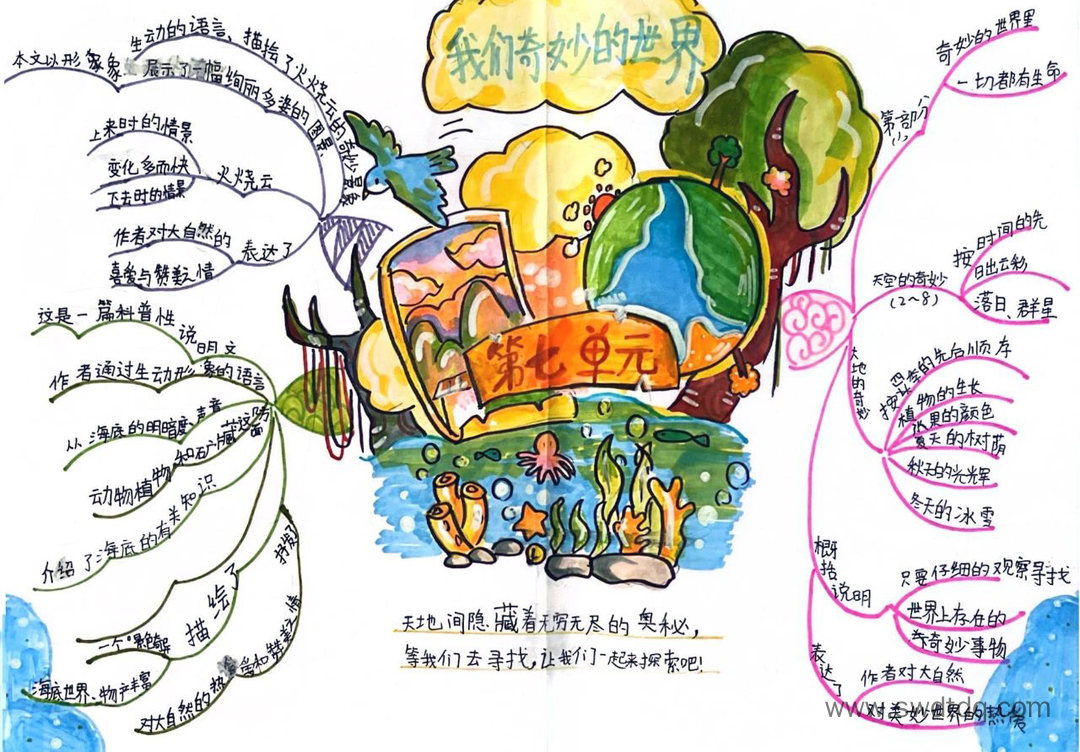 我们奇妙的世界
第七单元
本文以形象
生动的语言、描绘了火烧云的奇妙景象
展示了一幅绚丽多姿的图景.
上来时的情景
变化多而快
下去时的情景
火烧云
作者对大自然的
喜爱与赞美之情
表达了
这是一篇科普性
说明文
作者通过生动形象的语言
从海底的明暗度、声音
动物植物和矿藏这
方面
介绍了海底的有关知识
描绘了
一个
海底世界、物产丰富
抒发了
对大自然的热爱和赞美之情
奇妙的世界里
一切都有生命
第一部分
(1)
天空的奇妙
(2~8)
按时间的先
日出云彩
落日、群星
大地的奇妙
按四季的先后顺序
植物的生长
水果的颜色
夏天的树荫
秋天的光辉
冬天的冰雪
概括说明
只要仔细的观察寻找
世界上存在的
奇妙事物
表达了
作者对大自然
对美妙世界的热爱
天地间隐藏着无穷无尽的奥秘,
等我们去寻找,让我们一起来探索吧!
www.swdtdq.com